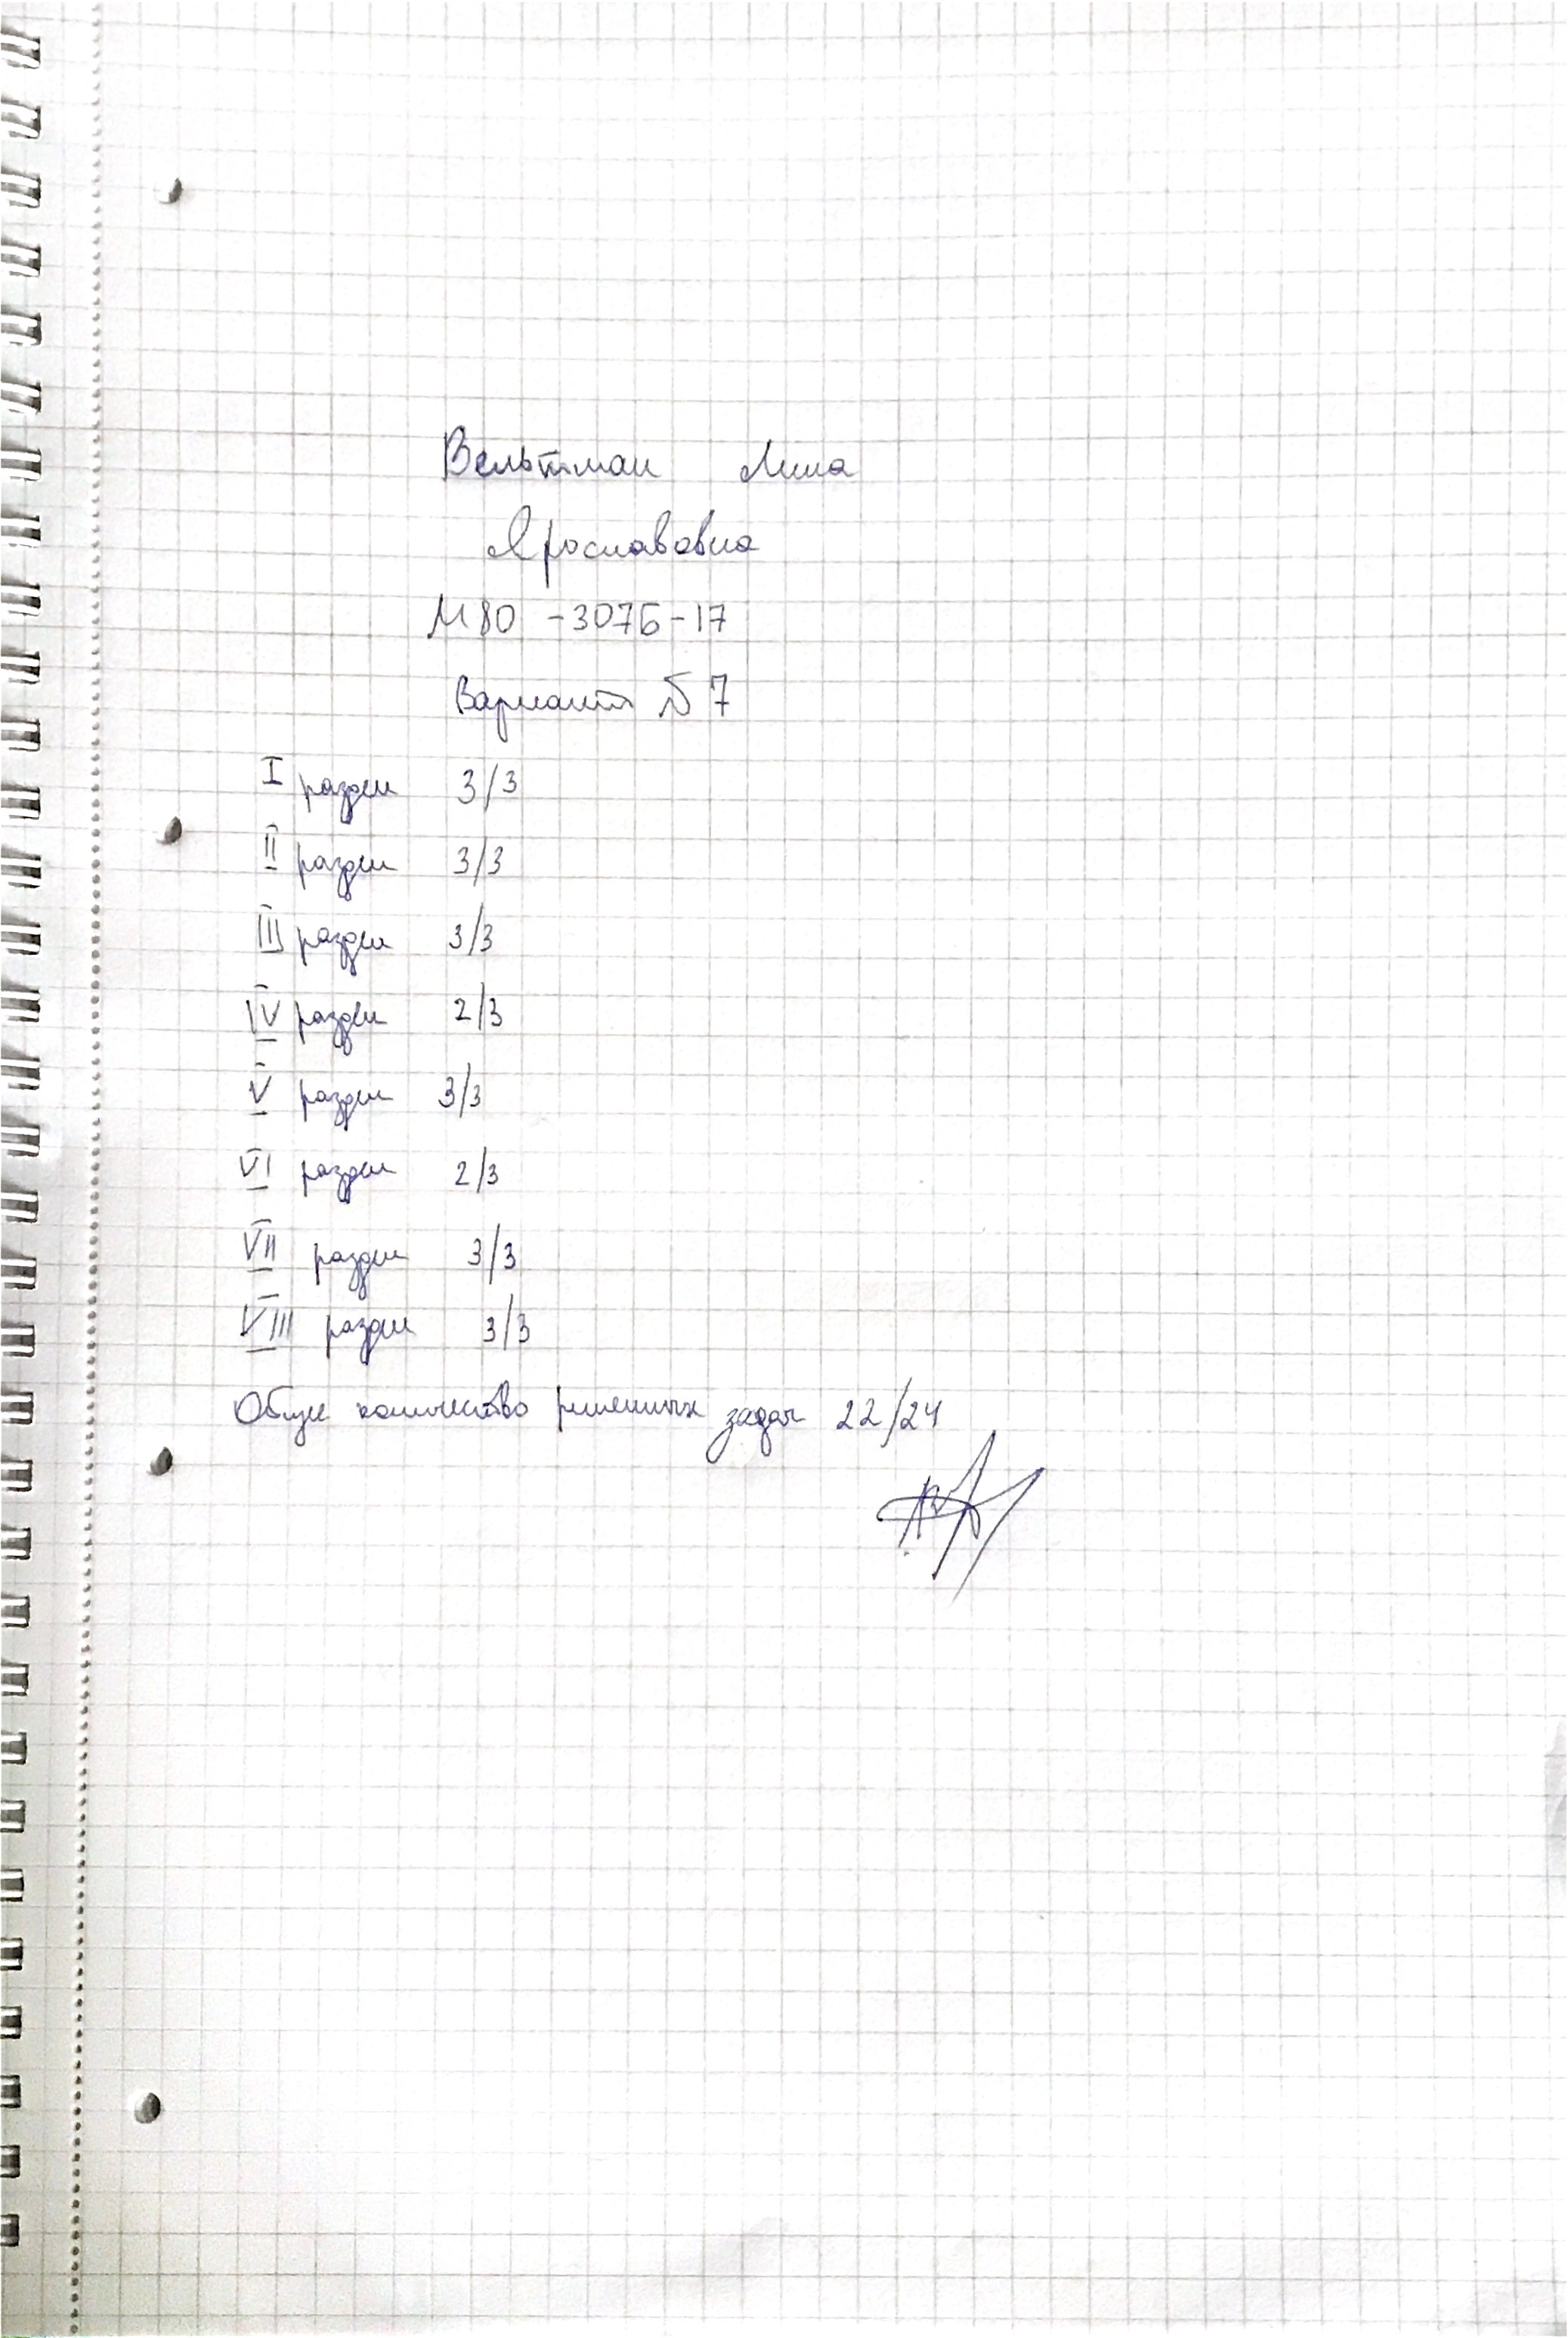 Вельтман Лина
Ярославовна
М80 -307Б-17
Вариант №7
I раздел 3/3
II раздел 3/3
III раздел 3/3
IV раздел 2/3
V раздел 3/3
VI раздел 2/3
VII раздел 3/3
VIII раздел 3/3
Общее количество решенных задач 22/24